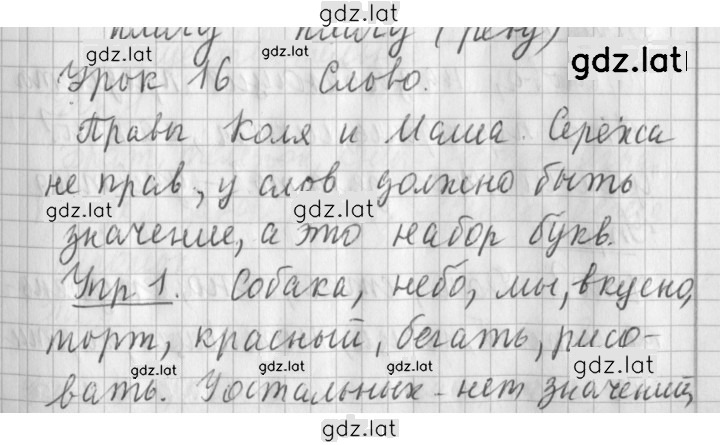 gdz.lat
плачу плачу (реву)
gdz.lat gdz.lat gdz.lat
Урок 16 Слово.
Правы Коля и Маша. Серёжа
не прав, у слов должно быть
gdz.lat gdz.lat
значение, а это набор букв.
Упр 1. Собака, небо, мы, вкусно,
торт, красный, бегать, рисо-
gdz.lat gdz.lat gdz.lat
вать. У остальных - нет значений,
gdz.lat